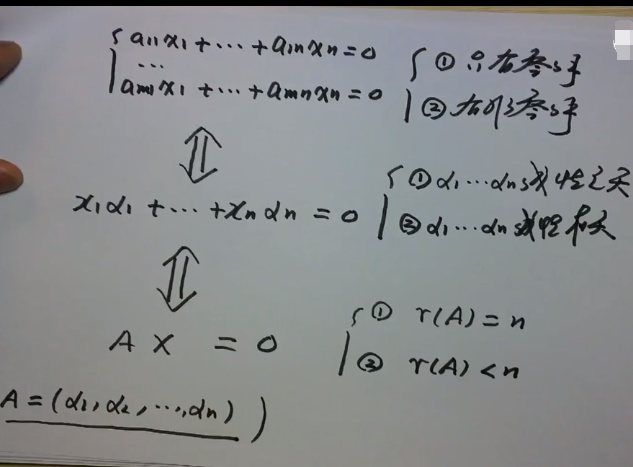 { a₁₁x₁ + ⋯ + a₁ₙxₙ = 0 { ① 只有零解
⋯
aₘ₁x₁ + ⋯ + aₘₙxₙ = 0 ② 有非零解
⇕
x₁α₁ + ⋯ + xₙαₙ = 0 { ① α₁⋯αₙ线性无关
② α₁⋯αₙ线性相关
⇕
AX = 0 { ① r(A) = n
② r(A) < n
A = (α₁, α₂, ⋯, αₙ) )